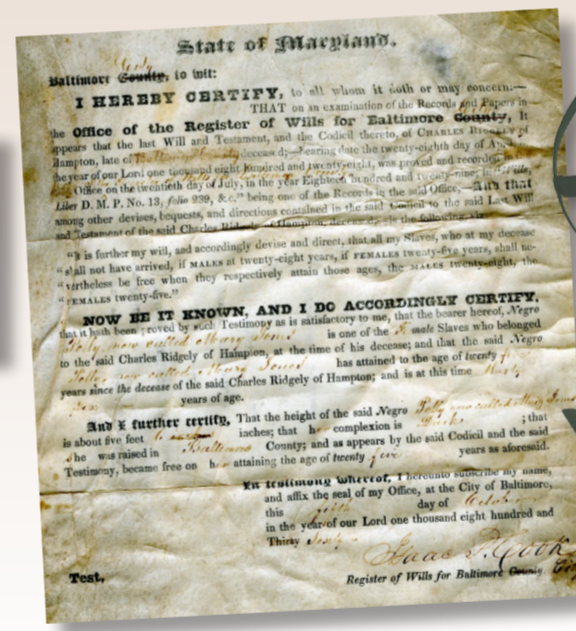 State of Maryland.
Baltimore County, to wit:
I HEREBY CERTIFY, to all whom it doth or may concern:—
THAT on an examination of the Records and Papers in
the Office of the Register of Wills for Baltimore County, It
appears that the last Will and Testament, and the Codicil thereto, of CHARLES RIDGELY of
Hampton, late of Baltimore County deceased;—bearing date the twenty-eighth day of
the year of our Lord one thousand eight hundred and twenty-eight, was proved and recorded in
Office on the twentieth day of July, in the year Eighteen hundred and twenty-nine; in Wills,
Liber D. M. P. No. 13, folio 239, &c." being one of the Records in the said Office;—And that
among other devises, bequests, and directions contained in the said Codicil to the said Last Will
and Testament of the said Charles Ridgely of Hampton, deceased, is the following
"It is further my will, and accordingly devise and direct, that all my Slaves, who at my decease
"shall not have arrived, if MALES at twenty-eight years, if FEMALES twenty-five years, shall ne-
"vertheless be free when they respectively attain those ages, the MALES twenty-eight, the
"FEMALES twenty-five."
NOW BE IT KNOWN, AND I DO ACCORDINGLY CERTIFY,
that it hath been proved by such Testimony as is satisfactory to me, that the bearer hereof, Negro
Polly now called Mary Jones is one of the Fe male Slaves who belonged
to the said Charles Ridgely of Hampton, at the time of his decease; and that the said Negro
Polly now called Mary Jones has attained to the age of twenty
years since the decease of the said Charles Ridgely of Hampton; and is at this time
years of age.
And I further certify, That the height of the said Negro Polly now called Mary Jones
is about five feet inches; that her complexion is ; that
She was raised in Baltimore County; and as appears by the said Codicil and the said
Testimony, became free on her attaining the age of twenty five years as aforesaid.
In testimony whereof, I hereunto subscribe my name,
and affix the seal of my Office, at the City of Baltimore,
this day of
in the year of our Lord one thousand eight hundred and
Thirty
Isaac P. Cook
Test,
Register of Wills for Baltimore County.